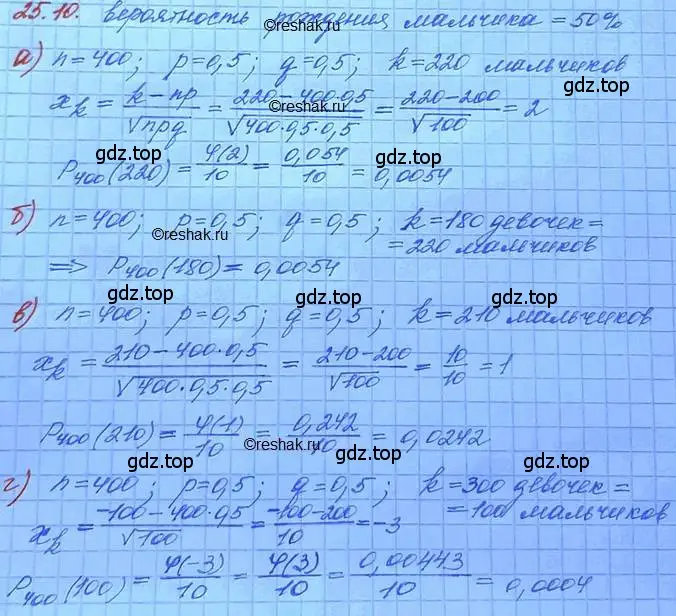 25.10. вероятность рождения мальчика = 50%
а) n = 400; p = 0,5; q = 0,5; k = 220 мальчиков
x_k = (k − np)/√npq = (220 − 400·0,5)/√(400·0,5·0,5) = (220 − 200)/√100 = 2
©reshak.ru
gdz.top gdz.top
P₄₀₀(220) = φ(2)/10 = 0,054/10 = 0,0054
б) n = 400; p = 0,5; q = 0,5; k = 180 девочек =
= 220 мальчиков
©reshak.ru
⇒ P₄₀₀(180) = 0,0054
gdz.top gdz.top
в) n = 400; p = 0,5; q = 0,5; k = 210 мальчиков
x_k = (210 − 400·0,5)/√(400·0,5·0,5) = (210 − 200)/√100 = 10/10 = 1
P₄₀₀(210) = φ(1)/10 = 0,242/10 = 0,0242
©reshak.ru
gdz.top gdz.top
г) n = 400; p = 0,5; q = 0,5; k = 300 девочек =
= 100 мальчиков
x_k = (-100 − 400·0,5)/√100 = (-100 − 200)/10 = −3
P₄₀₀(100) = φ(−3)/10 = φ(3)/10 = 0,00443/10 = 0,0004
gdz.top gdz.top